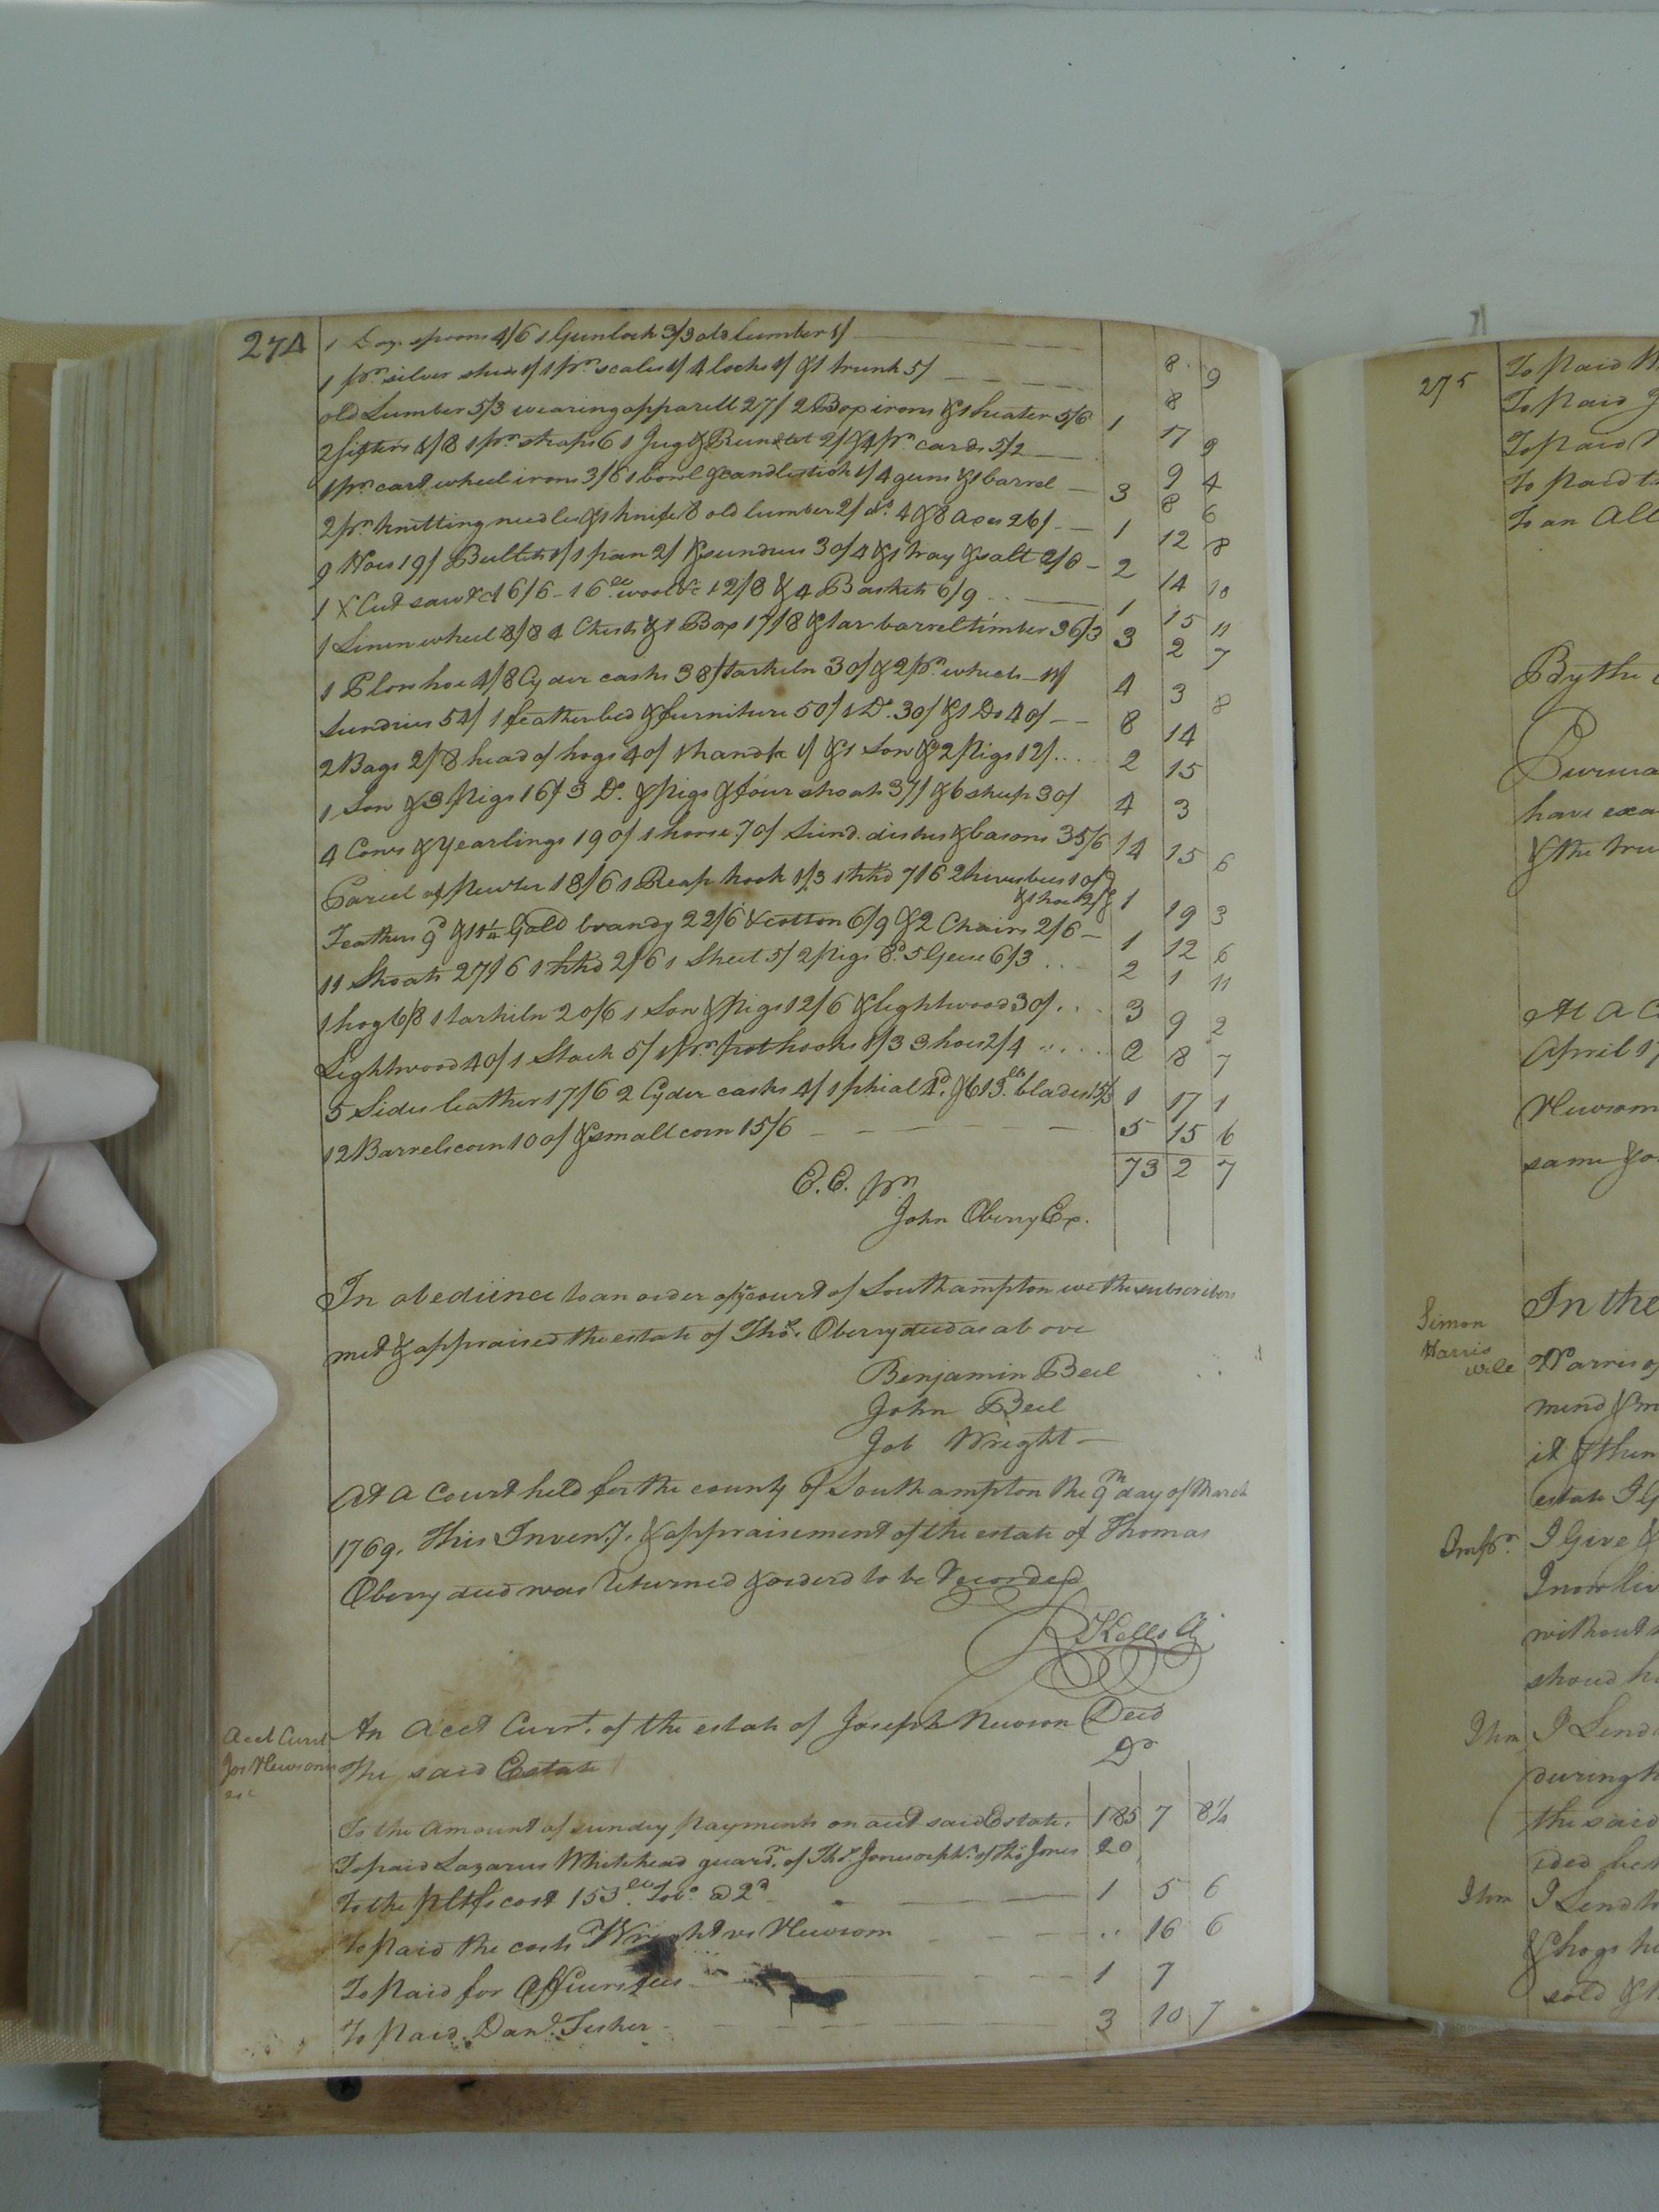 274
1 Doz. spoons 4/6 1 Gunlock 3/3 old lumber 1/ 8 9
1 pr. silver studs 1/ 1 pr. scales 1/ 4 locks 1/ & 1 trunk 5/ 8
old Lumber 5/3 wearing apparell 27/ 2 Box irons & 1 heater 5/6 1 17 9
2 sifters 1/8 1 pr. straps 6 1 Jug & Rundlet 2/ & 4 pr. cards 5/2 9 4
1 pr. cart wheel irons 3/6 1 bowl & candlestick 1/ 4 guns & 1 barrel 3 8 6
2 pr. knitting needles & 1 knife 8 old lumber 2/ do. 4 & 8 axes 26/ 1 12 8
9 Hoes 19/ Bullets 1/ 1 pan 2/ & sundries 30/4 & 1 tray & salt 2/6 2 14 10
1 X Cut saw &c 16/6 16 wool &c 12/8 & 4 Baskets 6/9 1 15 11
1 Linen wheel 8/8 4 Chests & 1 Box 17/8 & tar barrel timber 36/3 3 2 7
1 Plow hoe 4/8 Cyder casks 38/ tarkiln 30/ & 2 pr. wheels 11/ 4 3 8
Sundries 54/ 1 feather bed & furniture 50/ 1 Do. 30/ & 1 Do 40/ 8 14
2 Bags 2/ 8 head of hogs 40/ 1 hand 1/ & 1 Sow & 2 Pigs 12/ 2 15
1 Sow & 3 Pigs 16/ 3 Do. & Pigs & four shoats 37/ & 6 sheep 30/ 4 3
4 Cows & yearlings 190/ 1 horse 70/ Sund. dishes & basons 35/6 14 15 6
Parcel of Pewter 18/6 1 Reap hook 1/3 1 hhd 7/6 2 hives bees 10/
& 1 hoe 2/ 1 19 3
Feathers 9d & 11 1/4 Gall brandy 22/6 & cotton 6/9 & 2 Chairs 2/6 1 12 6
11 Shoats 27/6 1 hhd 2/6 1 Sheet 5/ 2 Pigs 8d. 5 Geese 6/3 2 1 11
1 hog 6/8 1 tarkiln 20/6 1 Sow & Pigs 12/6 & lightwood 30/ 3 9 2
Lightwood 40/ 1 Stack 5/ 1 pr. pothooks 1/3 3 hoes 2/4 2 8 7
5 Sides leather 17/6 2 Cyder casks 4/ 1 phial 4d. & 613 lb blades 15/3 1 17 1
12 Barrels corn 100/ & small corn 15/6 5 15 6
73 2 7
E. E. pr
John Oberry Ex.
In obedience to an order of ye court of Southampton we the subscribers
met & appraised the estate of Thos. Oberry deced as above
Benjamin Beel
John Beel
Job Wright
At a Court held for the county of Southampton the 9th day of March
1769. This Inven.y. & appraisement of the estate of Thomas
Oberry deced was returned & orderd to be Recorded
R Kello Cl
Acct Curnt
Jos Newsoms
esc
An Acct Curnt. of the estate of Joseph Newsom Deced
The said Estate Dr
To the Amount of sundry payments on acct said Estate. 185 7 8 1/2
To paid Lazarus Whitehead guardn. of Thos. Jones orph. of Thos Jones 20
To the Pltfs cost 153 lb Tobo. @ 2d 1 5 6
To Paid the costs Wright vs Newsom .. 16 6
To Paid for Officers fees 1 7
To Paid Danl. Fisher 3 10 7
275
To Paid
To Paid
To Paid
To Paid
To an All
By the
Pursua
have exa
& the tru
At a C
April 17
Newsom
same &
Simon
Harris
will
In the
Harris of
mind & m
it & then
estate I G
Impr.
I Give &
I now liv
without
shoud h
Itm
I Lend
during h
the said
ided bet
Itm
I Lend to
& hogs h
sold &